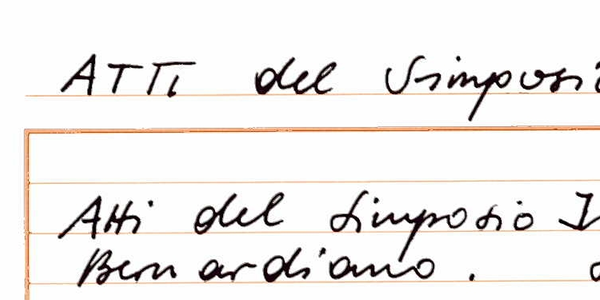 ATTI del Simposi
Atti del Simposio I
Bernardiano.